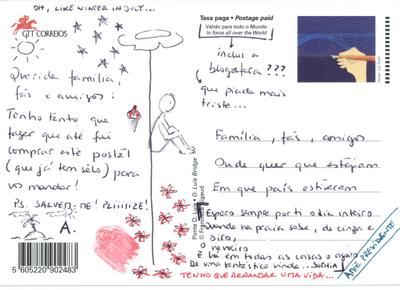 OH, LIKE WINTER IN JULY...
CTT CORREIOS
Taxa paga • Postage paid
Válido para todo o Mundo
In force all over the World
inclui a
blogosfera???
que piada mais
triste...
Querida família,
fãs e amigos:
Tenho tanto que
fazer que até fui
comprar este postal
(que já tem selo) para
vos mandar!
PS. SALVEM-ME! PLIIIIIZE!
A.
5 605220 902483
Ponte D. Luís • D. Luís Bridge
Família, fãs, amigos
Onde quer que estejam
Em que país estiverem
Espero sempre por ti o dia inteiro
Quando na praia sobe, de cinza e
oiro,
o nevoeiro
E há em todas as coisas o agoiro
De uma fantástica vinda. SOPHIA
TENHO QUE ARRANJAR UMA VIDA...